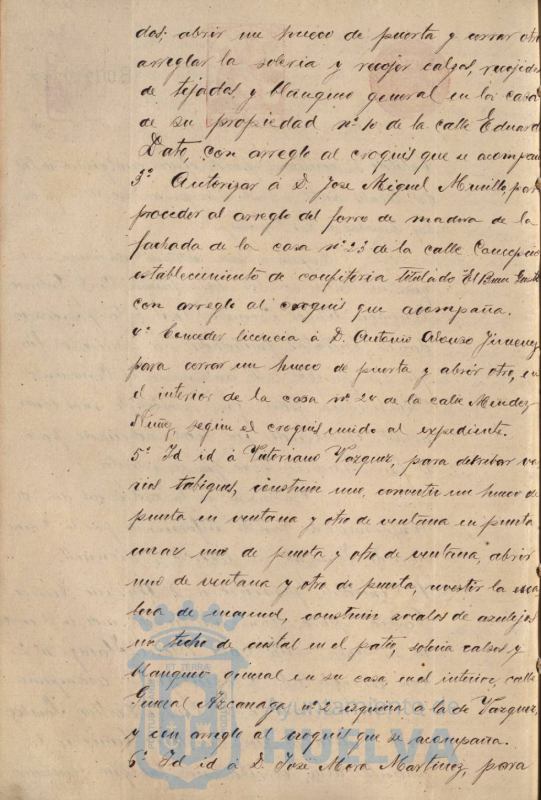 dos; abrir un hueco de puerta y cerrar otro
arreglar la soleria y recojer calzos, recojido
de tejados y blanqueo general en la casa
de su propiedad nº 10 de la calle Eduardo
Dato, con arreglo al croquis que se acompaña
3º Autorizar á D. Jose Miguel Murillo, para
proceder al arreglo del forro de madera de la
fachada de la casa nº 23 de la calle Concepcion
establecimiento de confiteria titulado El Buen Gusto
con arreglo al croquis que acompaña.
4º Conceder licencia á D. Antonio Alonso Jimenez
para cerrar un hueco de puerta y abrir otro, en
el interior de la casa nº 20 de la calle Mendez
Nuñez, según el croquis unido al expediente.
5º Id id á Victoriano Vazquez, para derribar va
rios tabiques, construir uno, convertir un hueco de
puerta en ventana y otro de ventana en puerta,
cerrar uno de puerta y otro de ventana, abrir
uno de ventana y otro de puerta, revestir la esca
lera de marmol, construir zocalos de azulejos
un techo de cristal en el patio, soleria calzos y
blanqueo general en su casa, en el interior, calle
General Azcarraga nº 2 esquina a la de Vazquez,
y con arreglo al croquis que se acompaña.
6º Id id á D. Jose Mora Martinez, para
ET TERRAE
Ayuntamiento de
HUELVA